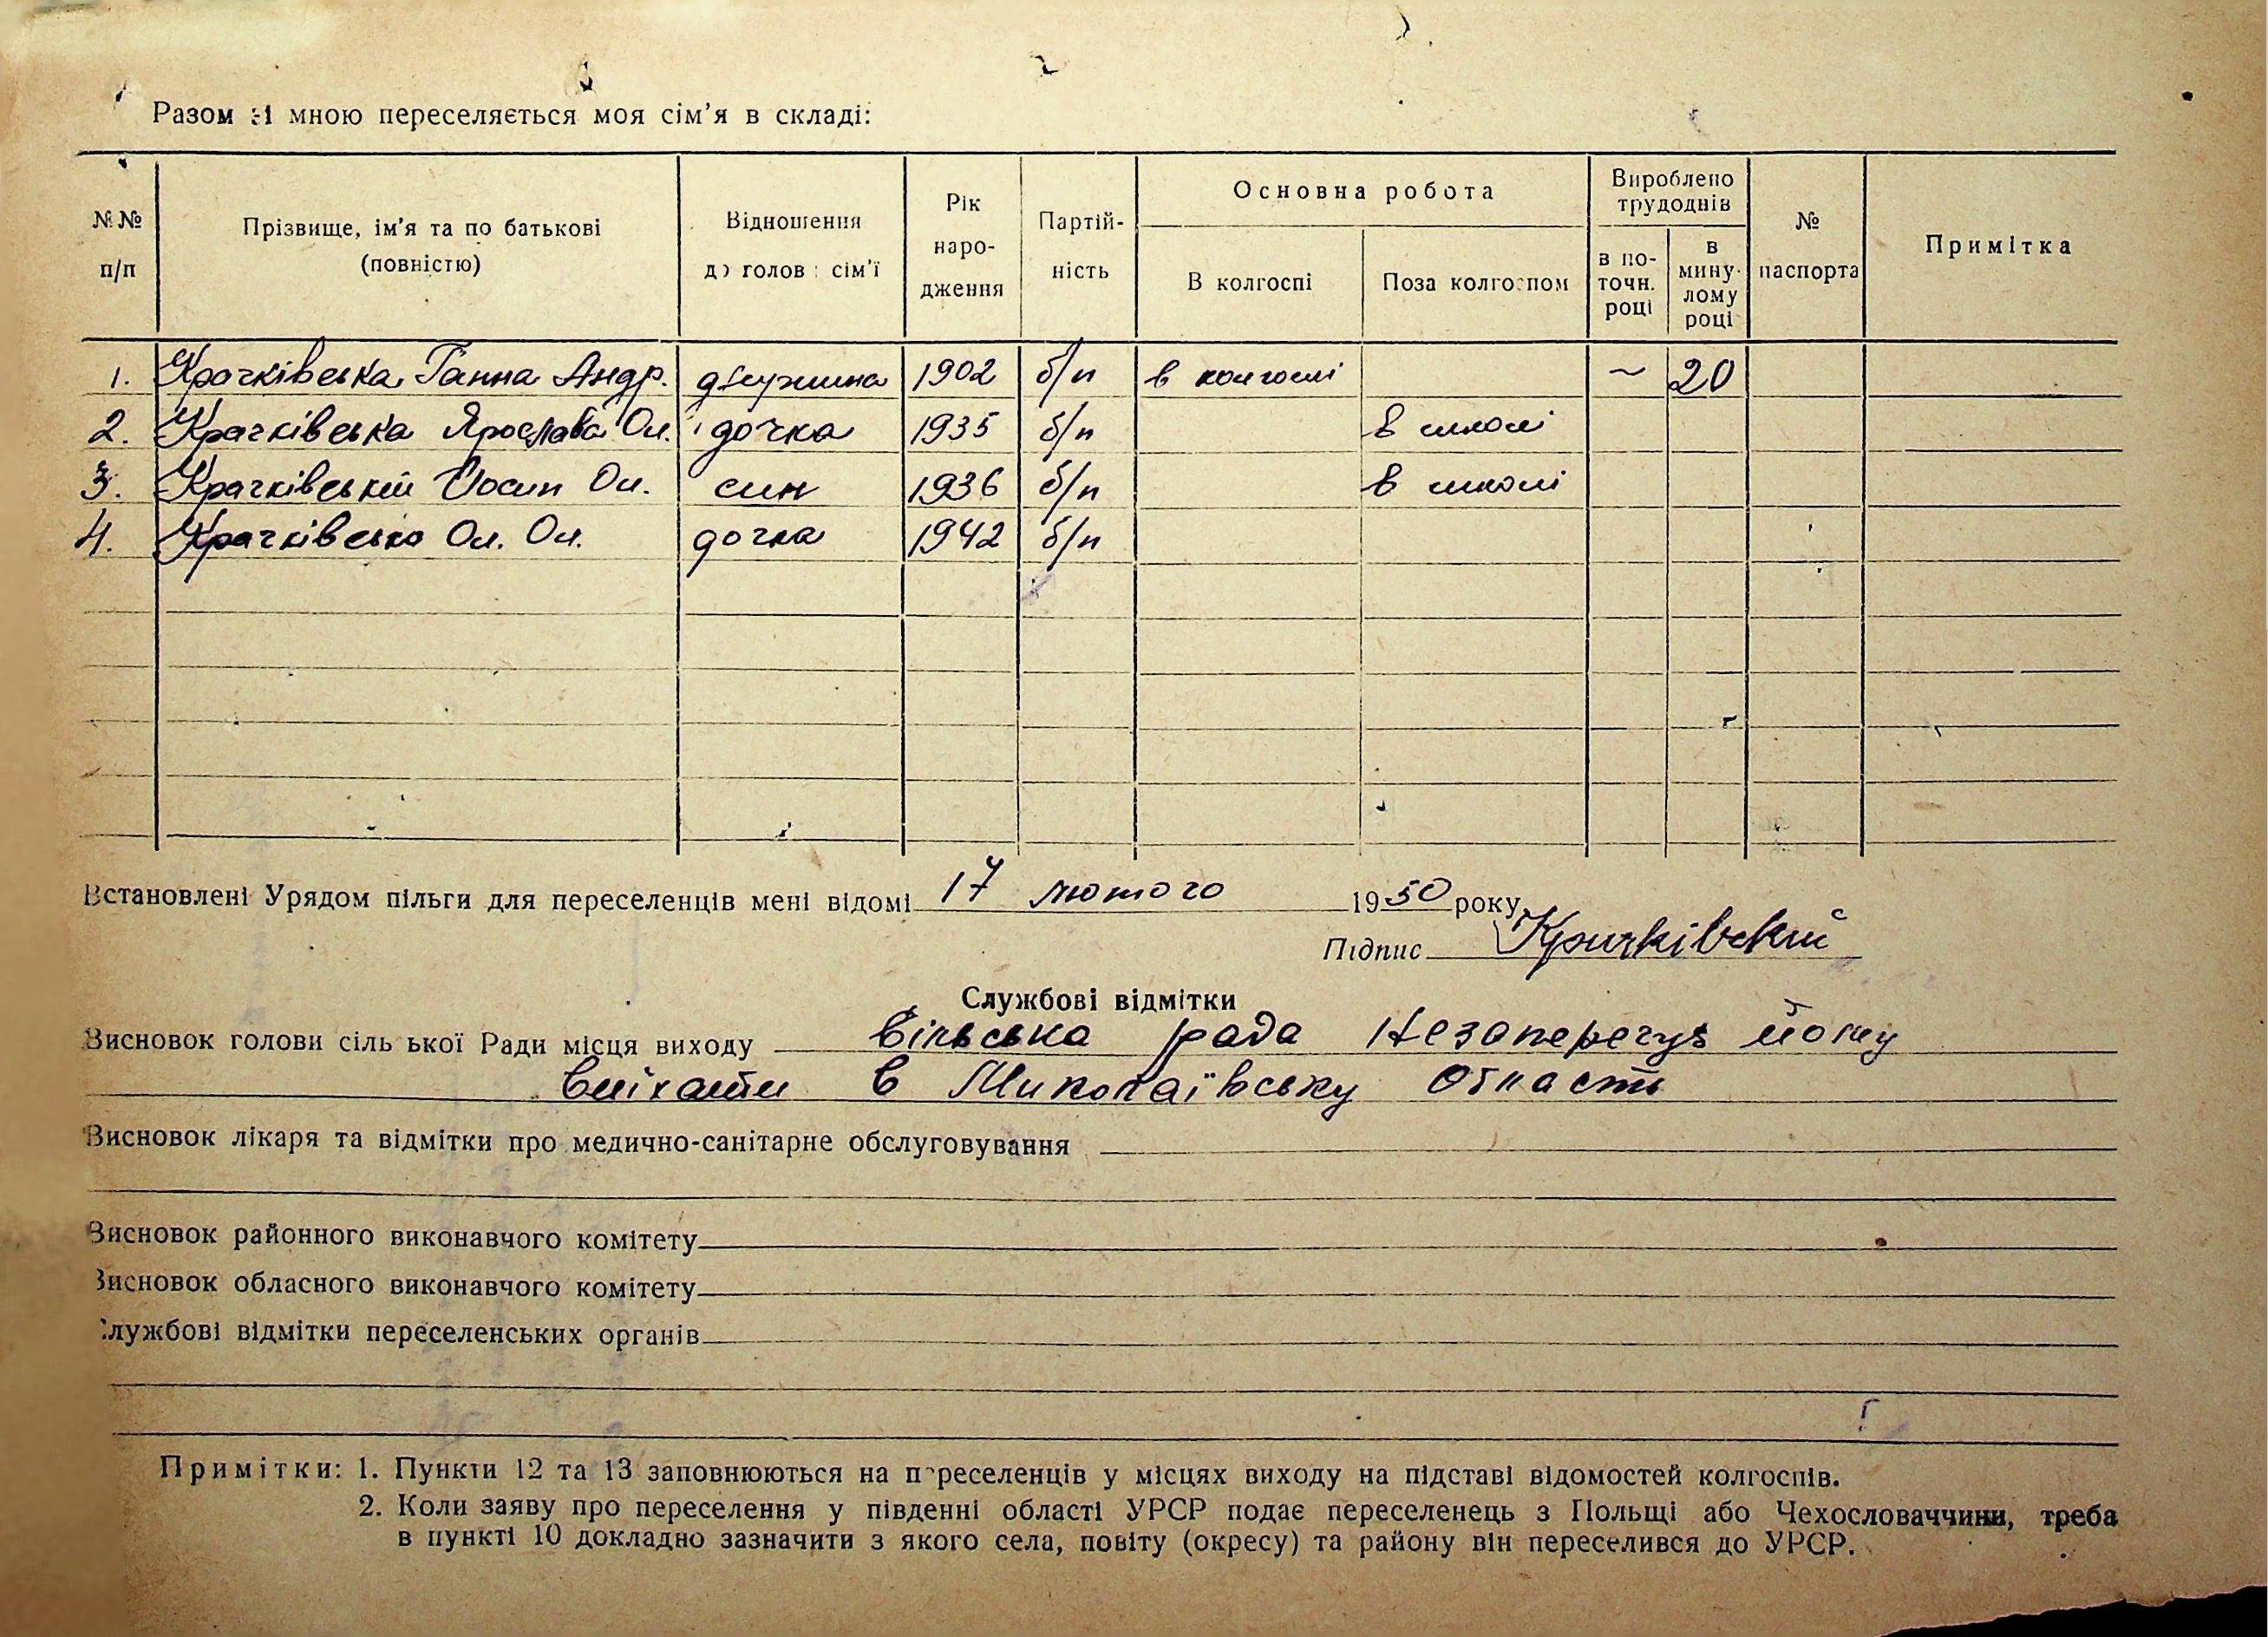 Разом зі мною переселяється моя сім'я в складі:
№№ п/п Прізвище, ім'я та по батькові (повністю) Відношення до голови сім'ї Рік народження Партійність Основна робота В колгоспі Поза колгоспом Вироблено трудоднів в поточн. році в минулому році № паспорта Примітка
1. Крачківська Ганна Андр. дружина 1902 б/п в колгоспі ~ 20
2. Крачківська Ярослава Ол. дочка 1935 б/п в школі
3. Крачківський Йосип Ол. син 1936 б/п в школі
4. Крачківська Ол. Ол. дочка 1942 б/п
Встановлені Урядом пільги для переселенців мені відомі 17 лютого 1950 року
Підпис Крачківский
Службові відмітки
Висновок голови сільської Ради місця виходу Сільська рада Незаперечує йому
виїхати в Миколаївську область
Висновок лікаря та відмітки про медично-санітарне обслуговування
Висновок районного виконавчого комітету
Висновок обласного виконавчого комітету
Службові відмітки переселенських органів
Примітки: 1. Пункти 12 та 13 заповнюються на переселенців у місцях виходу на підставі відомостей колгоспів.
2. Коли заяву про переселення у південні області УРСР подає переселенець з Польщі або Чехословаччини, треба
в пункті 10 докладно зазначити з якого села, повіту (окресу) та району він переселився до УРСР.